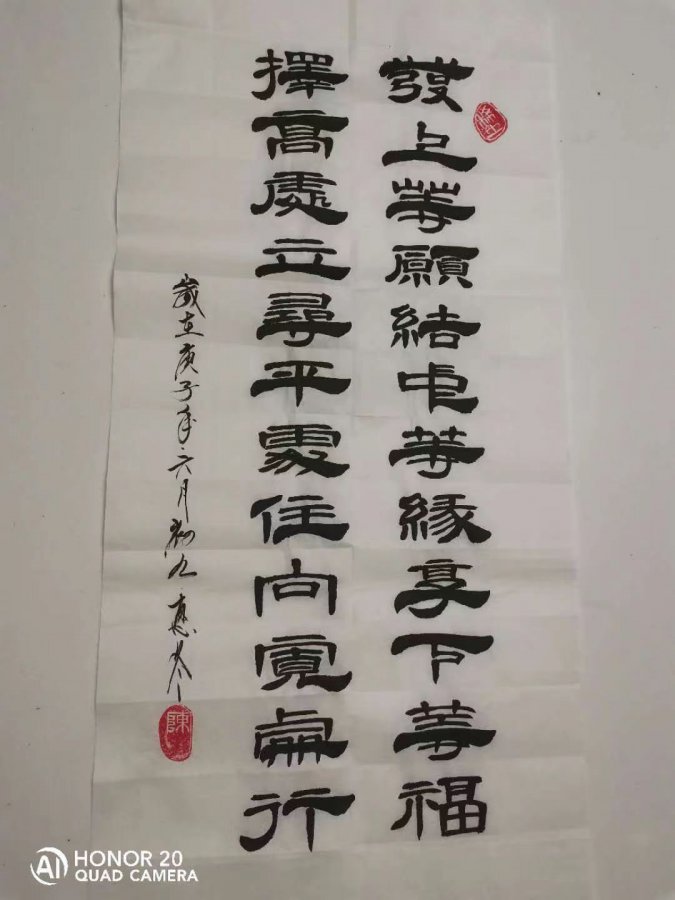 發上等願結中等緣享下等福
擇高處立尋平處住向寬處行
歲在庚子年六月初九
陳
HONOR 20
QUAD CAMERA
AI